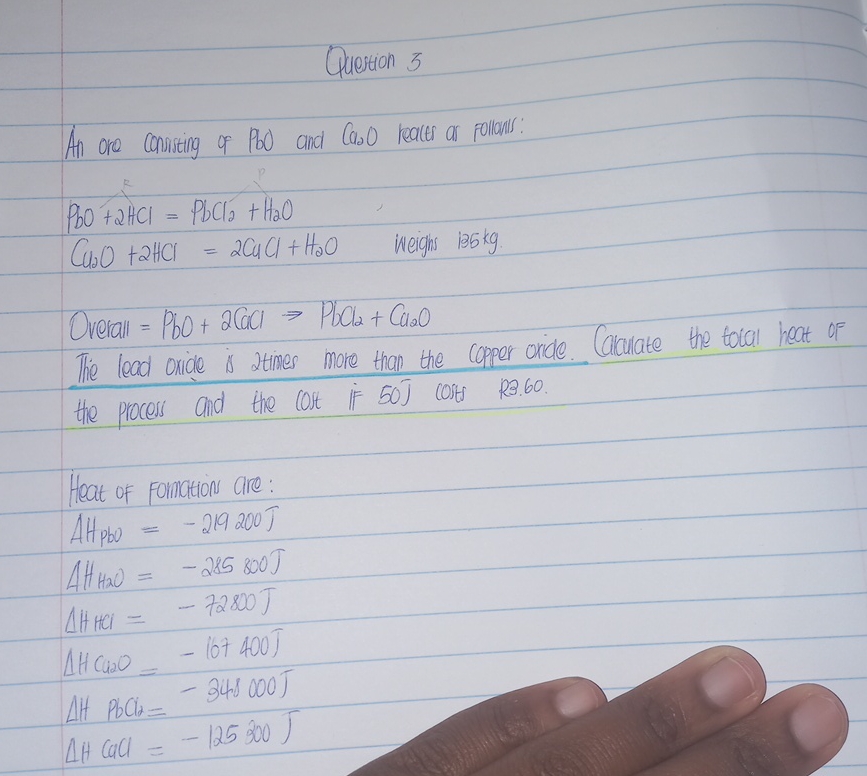 Question 3
An ore consisting of PbO and Cu2O reacts as follows:
R P
PbO + 2HCl = PbCl2 + H2O
Cu2O + 2HCl = 2CuCl + H2O Weighs 135kg.
Overall = PbO + 2CuCl ⇒ PbCl2 + Cu2O
The lead oxide is 2times more than the copper oxide. Calculate the total heat of
the process and the cost if 50J costs R3.60.
Heat of Formation are:
ΔH PbO = - 219 200J
ΔH H2O = - 285 800J
ΔH HCl = - 72800J
ΔH Cu2O = - 167 400J
ΔH PbCl2 = - 348 000J
ΔH CuCl = - 125 300 J